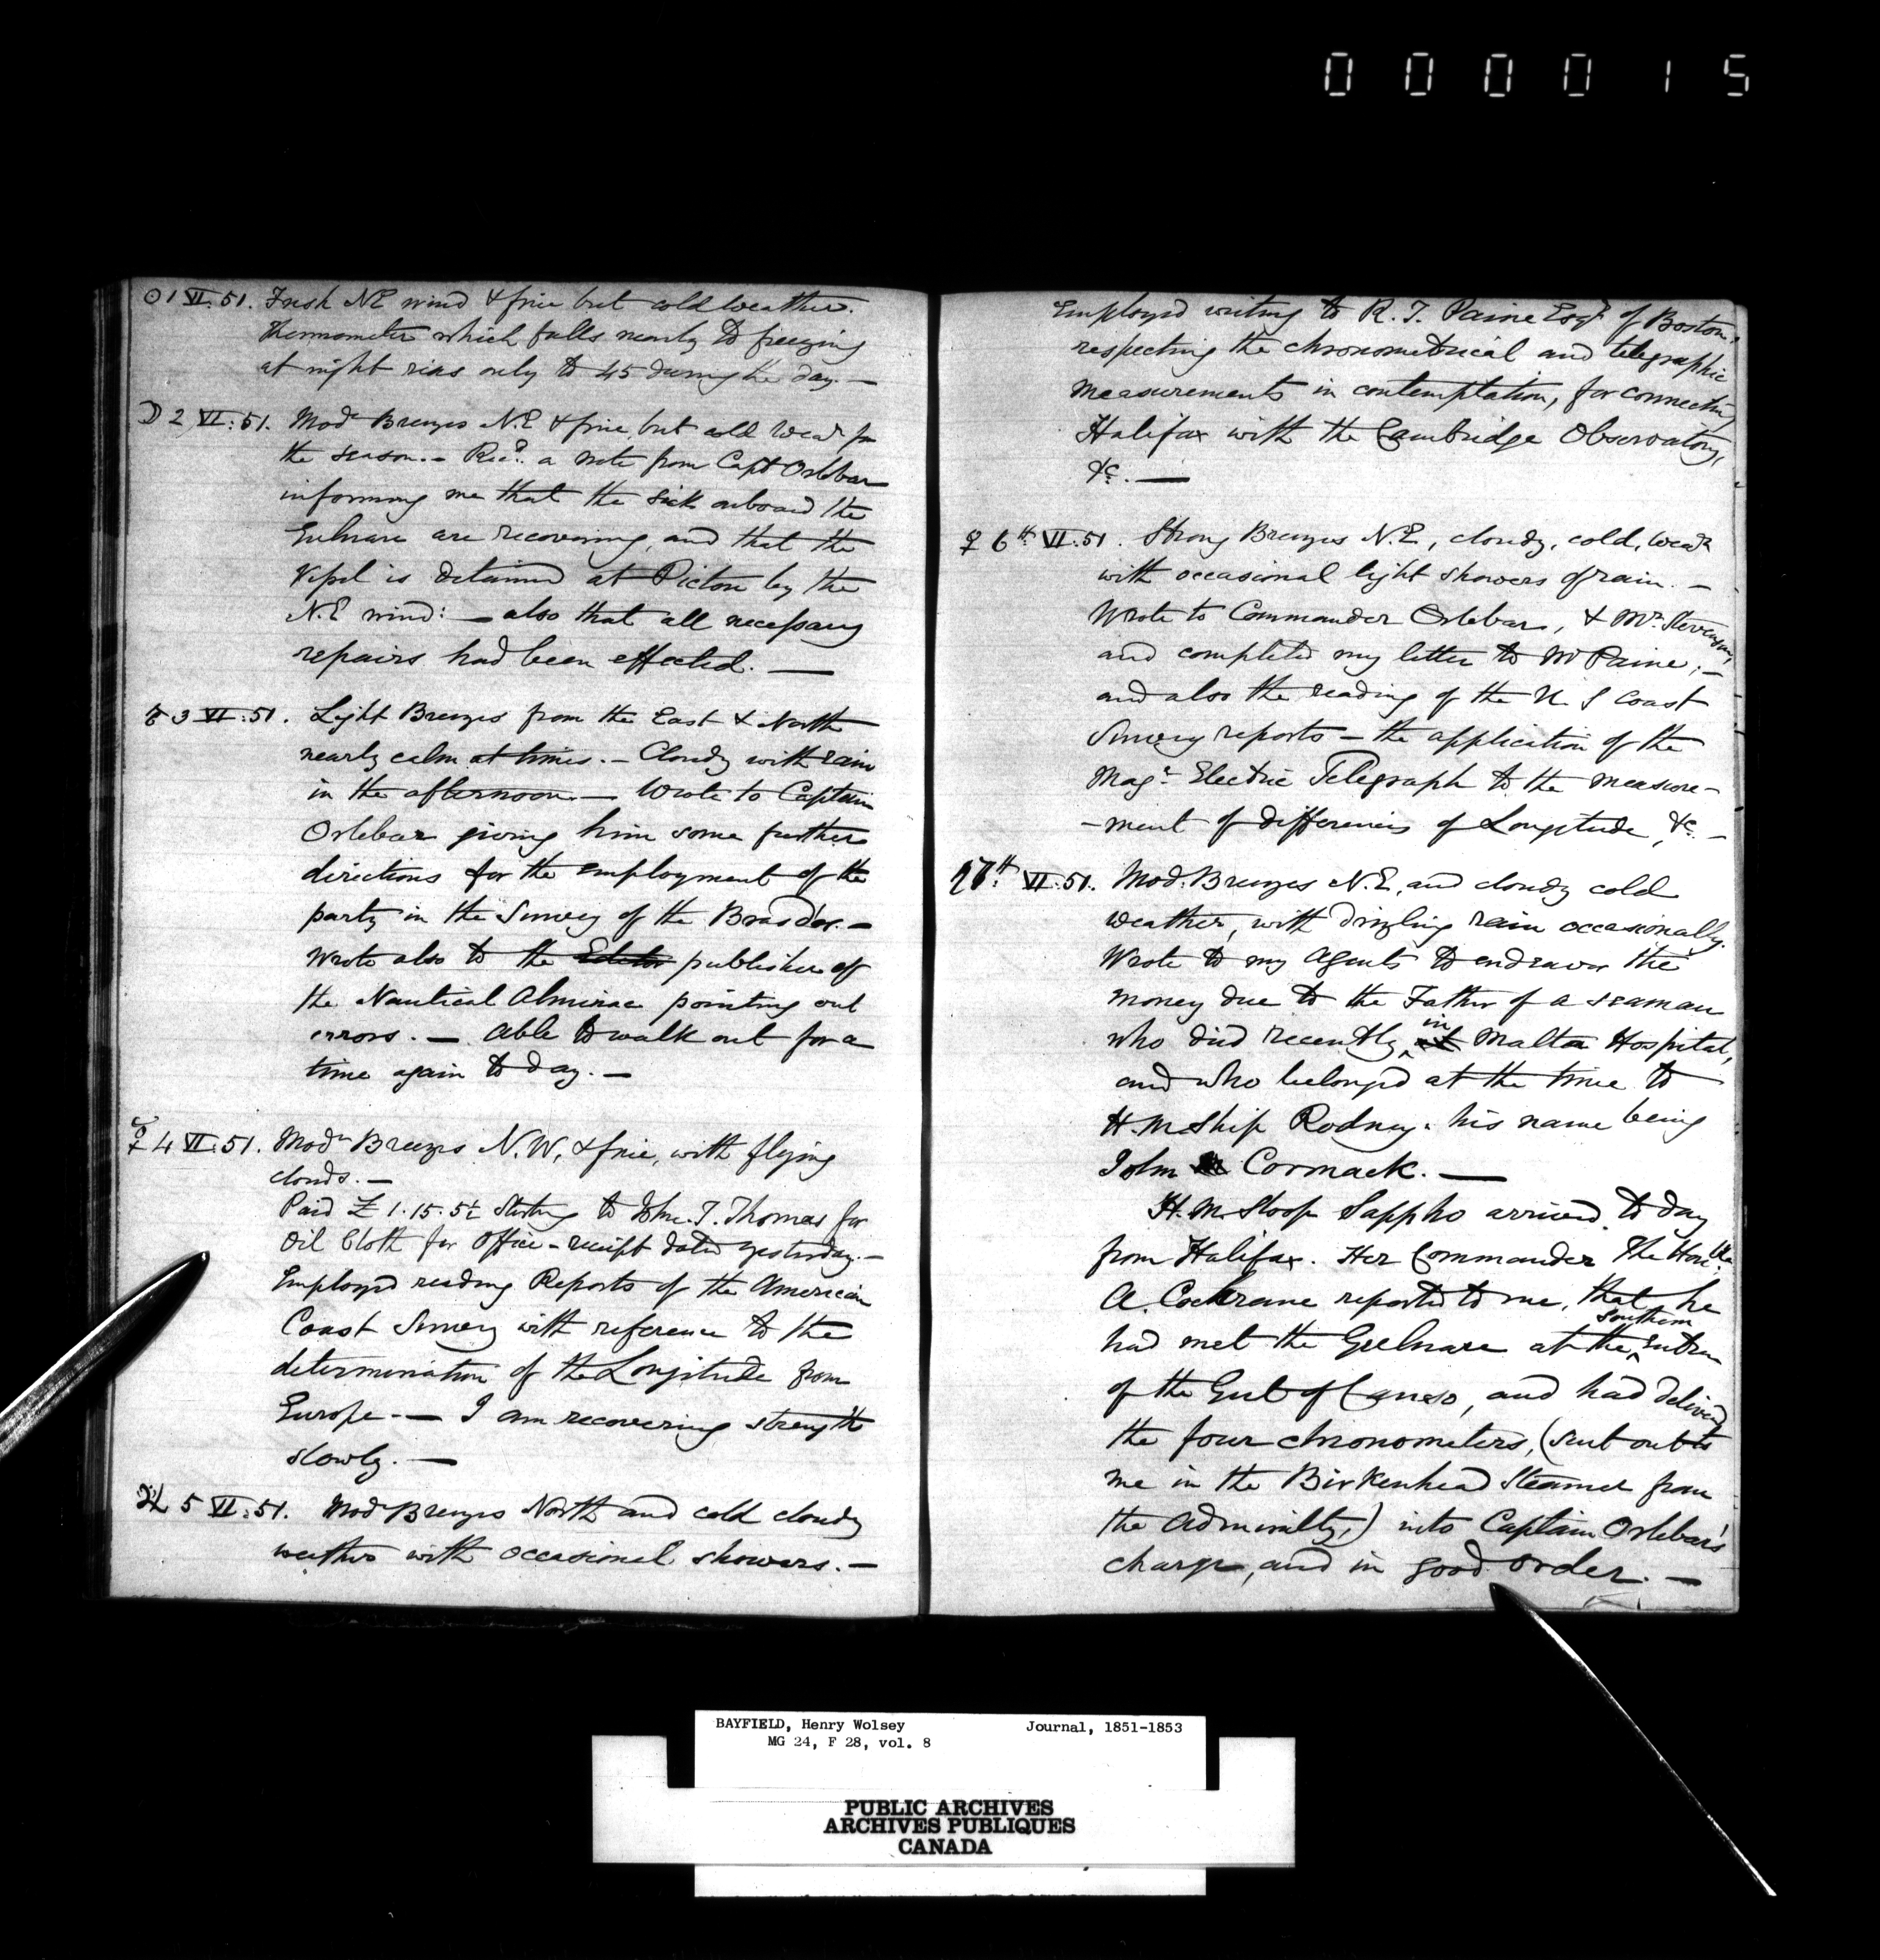 000015
☉ 1 VI. 51. Fresh NE wind & fine but cold weather.
Thermometer which falls nearly to freezing
at night rises only to 45 during the day. —
☽ 2 VI. 51. Modᵉ Breezes N.E & fine, but cold Weaʳ for
the season. — Recᵈ. a note from Capt Orlebar
informing me that the sick onboard the
Gulnare are recovering, and that the
Vessel is detained at Pictou by the
N.E wind: — also that all necessary
repairs had been effected. —
3 VI. 51. Light Breezes from the East & North
nearly calm at times. — Cloudy with rain
in the afternoon — Wrote to Captain
Orlebar giving him some further
directions for the employment of the
party in the Survey of the Bras d'or. —
Wrote also to the Editor publisher of
the Nautical Almanac pointing out
errors. — Able to walk out for a
time again to day. —
☿ 4 VI. 51. Modᵉ Breezes N.W, & fine, with flying
clouds. —
Paid £ 1.15.5½ Sterling to John. T. Thomas for
Oil Cloth for Office — receipt dated yesterday. —
Employed reading Reports of the American
Coast Survey with reference to the
determination of the Longitude from
Europe — I am recovering strength
slowly. —
♃ 5 VI. 51. Modᵉ Breezes North and cold cloudy
weather with occasional showers. —
Employed writing to R. T. Paine Esqʳ of Boston,
respecting the chronometrical and telegraphic
measurements in contemplation, for connecting
Halifax with the Cambridge Observatory,
&c. —
♀ 6ᵗʰ VI. 51. Strong Breezes N.E, cloudy, cold, Weaʳ
with occasional light showers of rain. —
Wrote to Commander Orlebar, & Mʳ. Stevenson,
and completed my letter to Mʳ Paine; —
and also the reading of the U. S Coast
Survey reports — the application of the
Magᶜ Electric Telegraph to the measure-
-ment of differences of Longitude, &c. —
♄ 7ᵗʰ VI. 51. Mod. Breezes N.E, and cloudy cold
weather, with drizling rain occasionally.
Wrote to my Agents to endeavor the
money due to the Father of a seaman
who died recently in at Malta Hospital,
and who belonged at the time to
H.M Ship Rodney. his name being
John Cormack. —
H.M. Sloop Sappho arrived to day
from Halifax. Her Commander The Honᵇˡᵉ
A. Cochrane reported to me, that he
had met the Gulnare at the southern entrance
of the Gut of Canso, and had delivered
the four chronometers, (sent out to
me in the Birkenhead Steamer from
the Admiralty,) into Captain Orlebar's
charge, and in good order. —
BAYFIELD, Henry Wolsey Journal, 1851-1853
MG 24, F 28, vol. 8
PUBLIC ARCHIVES
ARCHIVES PUBLIQUES
CANADA